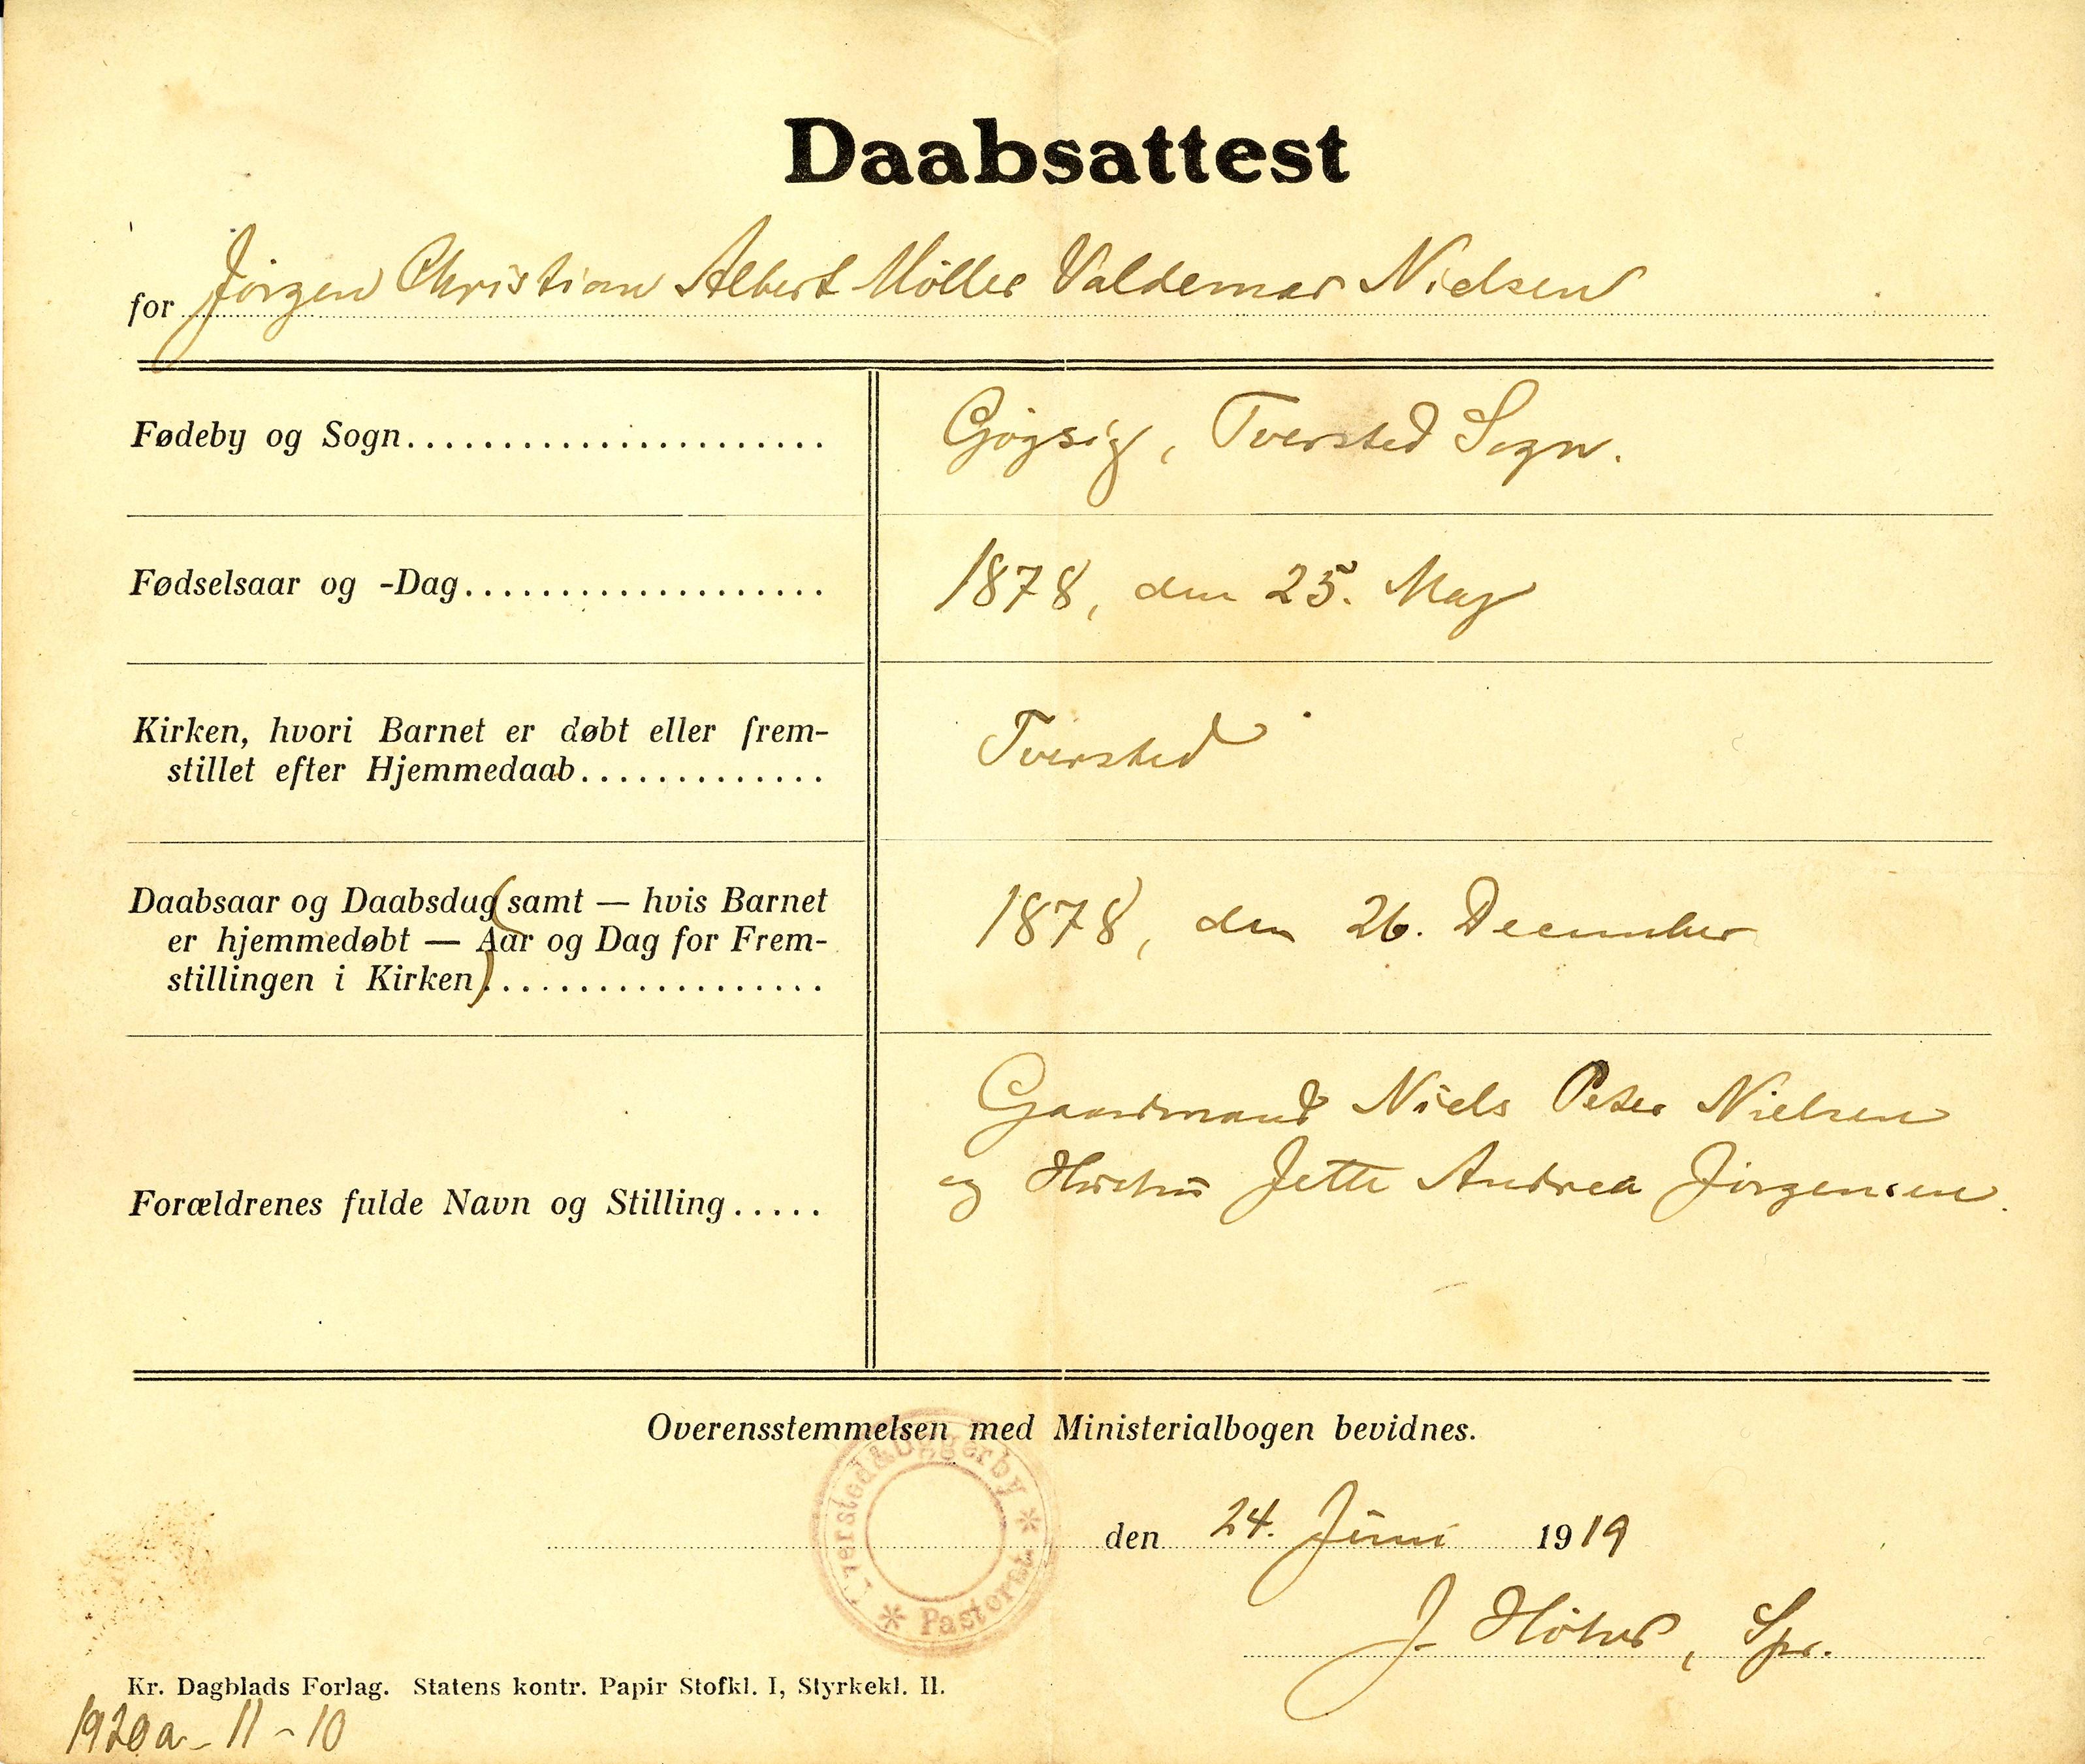 Daabsattest
for Jörgen Christian Albert Möller Valdemar Nielsen
Fødeby og Sogn........................ Gjøgsig, Tversted Sogn.
Fødselsaar og -Dag.................... 1878, den 25. May
Kirken, hvori Barnet er døbt eller frem-
stillet efter Hjemmedaab............. Tversted
Daabsaar og Daabsdag (samt — hvis Barnet
er hjemmedøbt — Aar og Dag for Frem-
stillingen i Kirken).................. 1878, den 26. December
Gaardmand Niels Peter Nielsen
og Hustru Jette Andrea Jörgensen.
Forældrenes fulde Navn og Stilling.....
Overensstemmelsen med Ministerialbogen bevidnes.
Tversted & Uggerby * Pastorat *
den 24. Juni 1919
J. , Spr.
Kr. Dagblads Forlag. Statens kontr. Papir Stofkl. I, Styrkekl. II.
1920a-11-10